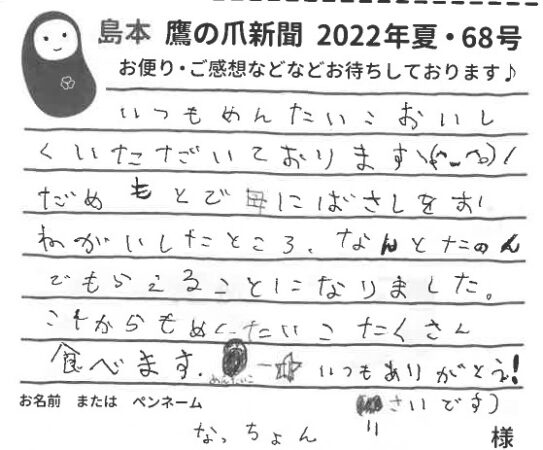 島本 鷹の爪新聞 2022年夏・68号
お便り・ご感想などなどお待ちしております♪
いつもめんたいこおいし
くいただいております\(^-^)/
だめもとで母にばさしをお
ねがいしたところ、なんとたのん
でもらえることになりました。
これからもめんたいこたくさん
食べます.
めんたいこ
いつもありがとう!
お名前 または ペンネーム
さいです)
なっちょん
様